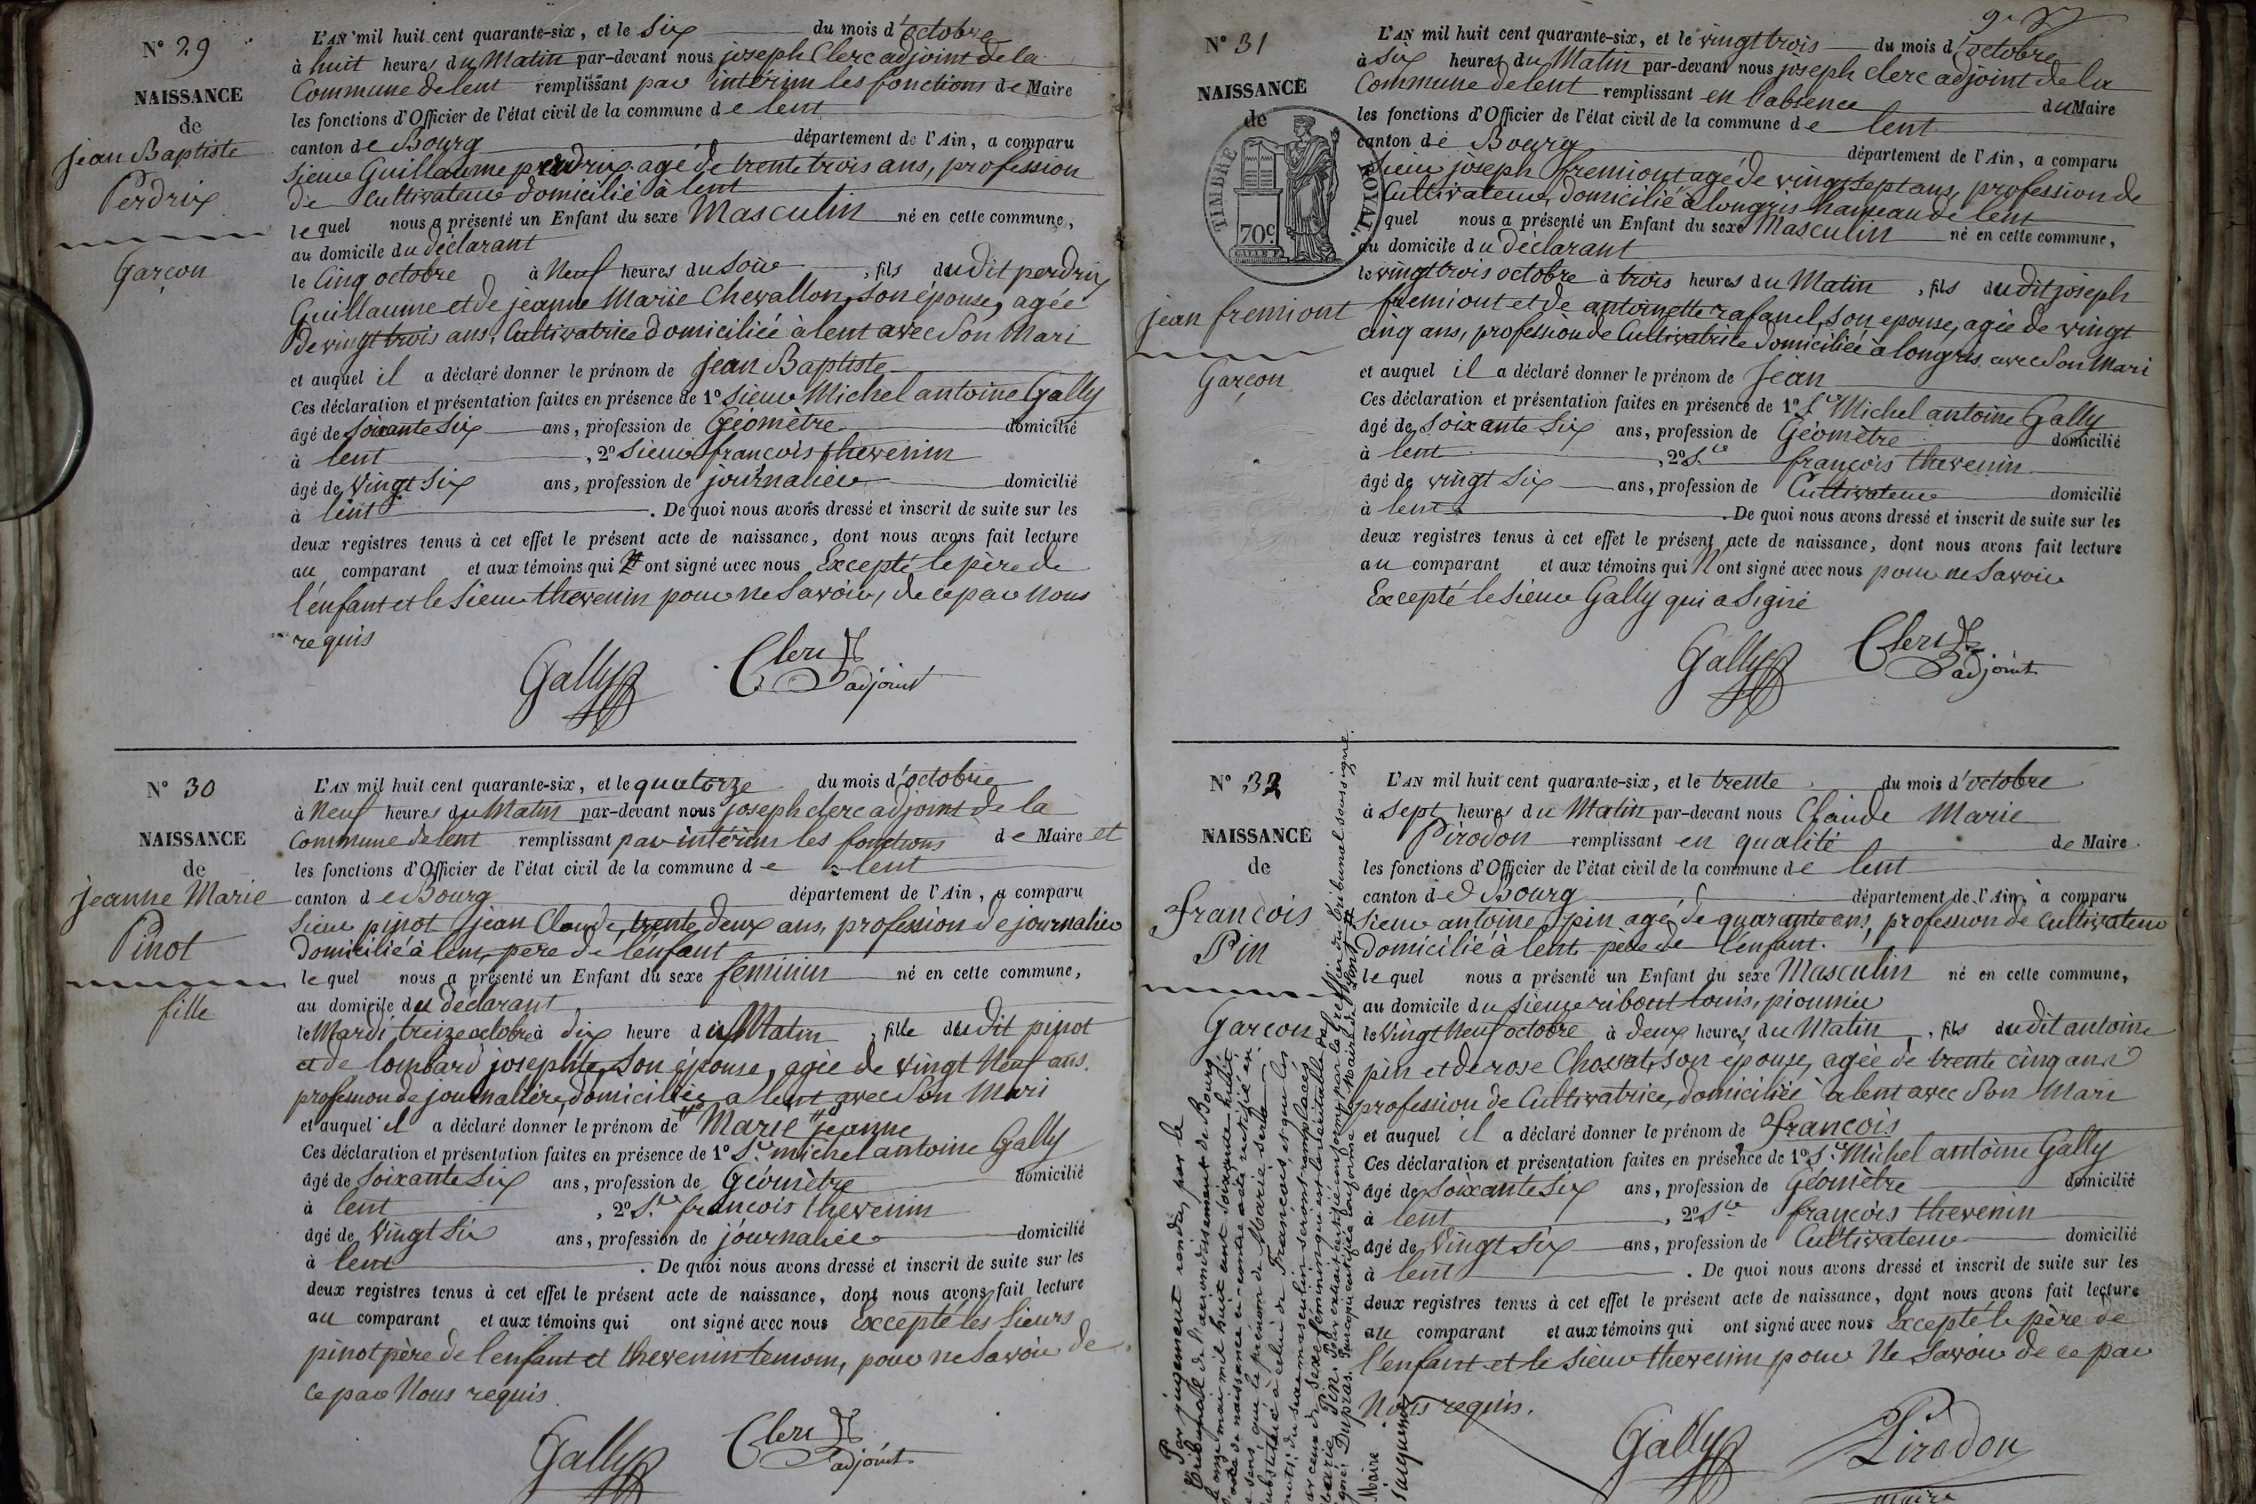 N° 29
NAISSANCE
de
jean Baptiste
Perdrix
Garçon
L'AN mil huit cent quarante-six, et le six du mois d'octobre
à huit heures du Matin par-devant nous joseph Clerc adjoint de la
Commune de lent remplissant par intérim les fonctions de Maire
les fonctions d'Officier de l'état civil de la commune de lent
canton de Bourg département de l'Ain, a comparu
Sieur Guillaume perdrix agé de trente trois ans, profession
de Cultivateur domicilié à lent
lequel nous a présenté un Enfant du sexe Masculin né en cette commune,
au domicile du déclarant
le Cinq octobre à Neuf heures du Soir, fils du dit perdrix
Guillaume et de jeanne Marie Chevallon, son épouse, agée
de vingt trois ans, Cultivatrice domiciliée à lent avec son Mari
et auquel il a déclaré donner le prénom de jean Baptiste
Ces déclaration et présentation faites en présence de 1° Sieur Michel antoine Gally
âgé de Soixante Six ans, profession de Géomètre domicilié
à lent, 2° Sieur françois thevenin
âgé de Vingt Six ans, profession de journalier domicilié
à lent. De quoi nous avons dressé et inscrit de suite sur les
deux registres tenus à cet effet le présent acte de naissance, dont nous avons fait lecture
au comparant et aux témoins qui ont signé avec nous Excepté le père de
l'enfant et le Sieur thevenin pour ne Savoir, de ce par Nous
requis
Gally Clerc
adjoint
N° 30
NAISSANCE
de
jeanne Marie
Pinot
fille
L'AN mil huit cent quarante-six, et le quatorze du mois d'octobre
à Neuf heures du Matin par-devant nous joseph clerc adjoint de la
Commune de lent remplissant par intérim les fonctions de Maire et
les fonctions d'Officier de l'état civil de la commune de lent
canton de Bourg département de l'Ain, a comparu
Sieur pinot jean Claude, trente deux ans, profession de journalier
Domicilié à lent, pere de l'enfant
lequel nous a présenté un Enfant du sexe féminin né en cette commune,
au domicile du déclarant
le Mardi treize octobre à dix heure du Matin, fille du dit pinot
et de lombard josephte, Son épouse, agée de Vingt Neuf ans.
profession de journalière, domiciliée à lent avec Son Mari
et auquel il a déclaré donner le prénom de Marie jeanne
Ces déclaration et présentation faites en présence de 1° Sr michel antoine Gally
âgé de Soixante Six ans, profession de Géomètre domicilié
à lent, 2° Sr françois thevenin
âgé de Vingt Six ans, profession de journalier domicilié
à lent. De quoi nous avons dressé et inscrit de suite sur les
deux registres tenus à cet effet le présent acte de naissance, dont nous avons fait lecture
au comparant et aux témoins qui ont signé avec nous Excepté les Sieurs
pinot père de l'enfant et thevenin temoin, pour ne Savoir de
ce par Nous requis
Gally Clerc
adjoint
N° 31
NAISSANCE
de
TIMBRE ROYAL.
70c
jean fremiont
Garçon
L'AN mil huit cent quarante-six, et le vingt trois du mois d'octobre
à Six heures du Matin par-devant nous joseph clerc adjoint de la
Commune de lent remplissant en l'absence du Maire
les fonctions d'Officier de l'état civil de la commune de lent
canton de Bourg département de l'Ain, a comparu
Sieur joseph fremiont agé de vingt sept ans, profession de
Cultivateur, domicilié à longris hameau de lent
quel nous a présenté un Enfant du sexe Masculin né en cette commune,
au domicile du déclarant
le vingt trois octobre à trois heures du Matin, fils du dit joseph
fremiont et de antoinette rafanel, son epouse, agée de vingt
cinq ans, profession de Cultivatrice domiciliée à longris avec Son Mari
et auquel il a déclaré donner le prénom de jean
Ces déclaration et présentation faites en présence de 1° Sr Michel antoine Gally
âgé de Soixante Six ans, profession de Géomètre domicilié
à lent, 2° Sr françois thevenin
âgé de vingt Six ans, profession de Cultivateur domicilié
à lent. De quoi nous avons dressé et inscrit de suite sur les
deux registres tenus à cet effet le présent acte de naissance, dont nous avons fait lecture
au comparant et aux témoins qui n'ont signé avec nous pour ne Savoir
Excepté le Sieur Gally qui a Signé
Gally Clerc
adjoint
N° 32
NAISSANCE
de
françois
Pin
Garçon
L'AN mil huit cent quarante-six, et le trente du mois d'octobre
à Sept heures du Matin par-devant nous Claude Marie
Pirodon remplissant en qualité de Maire
les fonctions d'Officier de l'état civil de la commune de lent
canton de Bourg département de l'Ain, a comparu
Sieur antoine pin agé de quarante ans, profession de Cultivateur
domicilié à lent père de l'enfant.
lequel nous a présenté un Enfant du sexe Masculin né en cette commune,
au domicile du Sieur ribout louis, pionnier
le Vingt Neuf octobre à deux heures du Matin, fils du dit antoine
pin et de rose Chossat, son epouse, agée de trente cinq ans
profession de Cultivatrice, domiciliée à lent avec Son Mari
et auquel il a déclaré donner le prénom de françois
Ces déclaration et présentation faites en présence de 1° Sr Michel antoine Gally
âgé de Soixante Six ans, profession de Géomètre domicilié
à lent, 2° Sr françois thevenin
âgé de Vingt Six ans, profession de Cultivateur domicilié
à lent. De quoi nous avons dressé et inscrit de suite sur les
deux registres tenus à cet effet le présent acte de naissance, dont nous avons fait lecture
au comparant et aux témoins qui ont signé avec nous Excepté le père de
l'enfant et le Sieur thevenin pour Ne Savoir de ce par
Nous requis.
Gally Pirodon
maire
Par jugement rendu par le
Tribunal de l'arrondissement de Bourg
le onze mai mil huit cent soixante huit
acte de naissance ci-contre a été rectifié en
ce sens que le prénom de Marie sera
substitué à celui de François, et que les
mots du sexe masculin seront remplacés
par ceux de sexe féminin
Marie Pin. Pour extrait certifié conforme par le Greffier du Tribunal soussigné.
signé: Dupras. Pour copie certifiée conforme Le Maire de Lent
Maire
Jacquemin